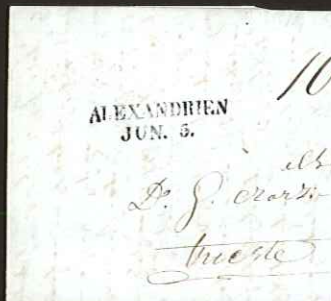 10
ALEXANDRIEN
JUN. 5.
Dr. G.
Trieste